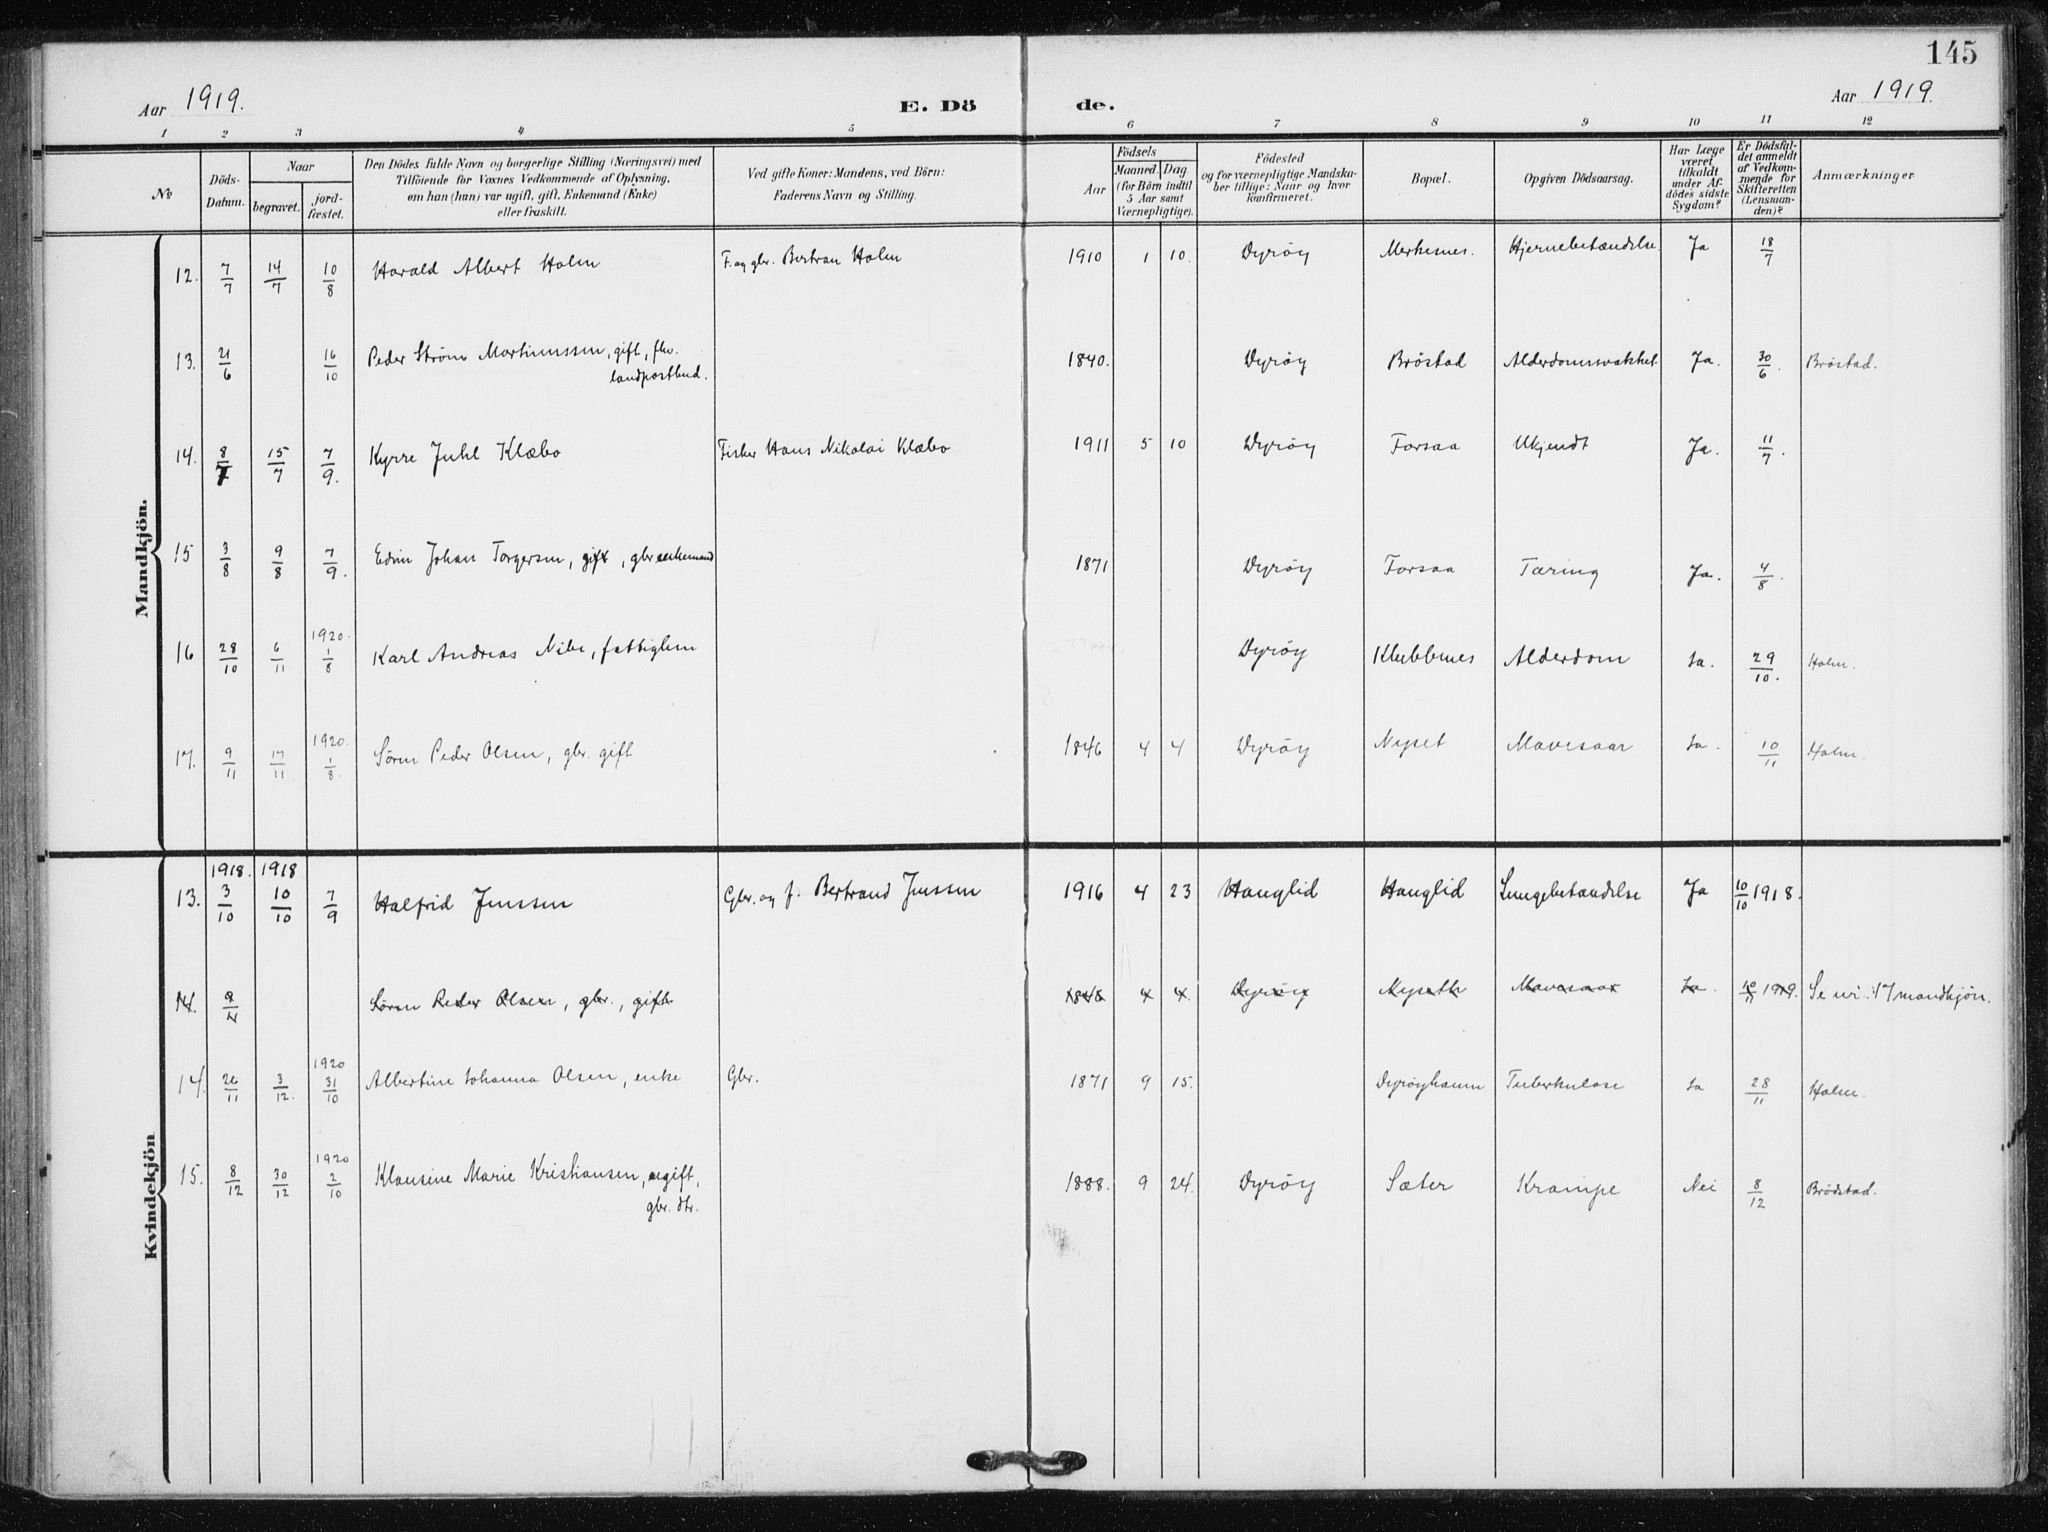 145
Aar 1919. E. Dö de. Aar 1919.
1 2 3 4 5 6 7 8 9 10 11 12
No
Döds-Datum.
Naar
begravet.
jord-fæstet.
Den Dödes fulde Navn og borgerlige Stilling (Næringsvei) med
Tilföiende for Voxnes Vedkommende af Oplysning,
om han (hun) var ugift, gift, Enkemand (Enke)
eller fraskilt.
Ved gifte Koner: Mandens, ved Börn:
Faderens Navn og Stilling.
Födsels
Aar
Maaned. Dag
(for Börn indtil
5 Aar samt
Værnepligtige).
Födested
og for værnepligtige Mandska-
ber tillige: Naar og hvor
konfirmeret.
Bopæl.
Opgiven Dödsaarsag.
Har Læge
været
tilkaldt
under Af-
dödes sidste
Sygdom?
Er Dödsfal-
det anmeldt
af Vedkom-
mende for
Skifteretten
(Lensman-
den)?
Anmærkninger
Mandkjön.
12. 7/7 14/7 10/8 Harald Albert Holm F. og gbr. Bertran Holm 1910 1 10. Dyröy Merkesnes. Hjernebetændelse Ja 18/7
13. 21/6 16/10 Peder Strøm Martinussen, gift, fhv. 1840. Dyröy Bröstad Alderdomssvakhet Ja. 30/6. Bröstad.
landpostbud.
14. 8/7 15/7 7/9. Kyrre Juhl Klæbo Fisker Hans Nikolai Klæbo 1911 5 10 Dyröy Forsaa Ukjendt Ja. 11/7.
15 3/8 9/8 7/9. Edin Johan Torgersen, gift, gbr enkemand 1871 Dyröy Forsaa Tæring Ja. 4/8.
1920.
16 28/10 6/11 1/8 Karl Andreas Nibe, fattiglem Dyröy Klubbenes Alderdom Ja. 29/10. Holm.
1920.
17. 9/11 17/11 1/8. Sören Peder Olsen, gbr. gift 1846 4 4 Dyröy Nyset Mavesaar Ja. 10/11 Holm.
Kvindekjön
1918. 1918
13. 3/10 10/10 7/9 Halfrid Jenssen Gbr. og f. Bertrand Jenssen 1916 4 23 Hanglid Hanglid Lungebetændelse Ja 10/10 1918.
14. 9/11 Sören Peder Olsen, gbr., gift 1846 4 4. Dyröy Nyseth Mavesaar Ja. 10/11 1919. Se nr. 17 mandkjön.
1920
14. 26/11 3/12. 31/10 Albertine Johanna Olsen, enke Gbr. 1871 9 15. Dyröyhamn Tuberkulose Ja 28/11 Holm.
1920
15. 8/12 30/12 2/10 Klausine Marie Kristiansen, ugift, 1888. 9 24. Dyröy Sæter Krampe Nei 8/12 Brödstad.
gbr. dtr.